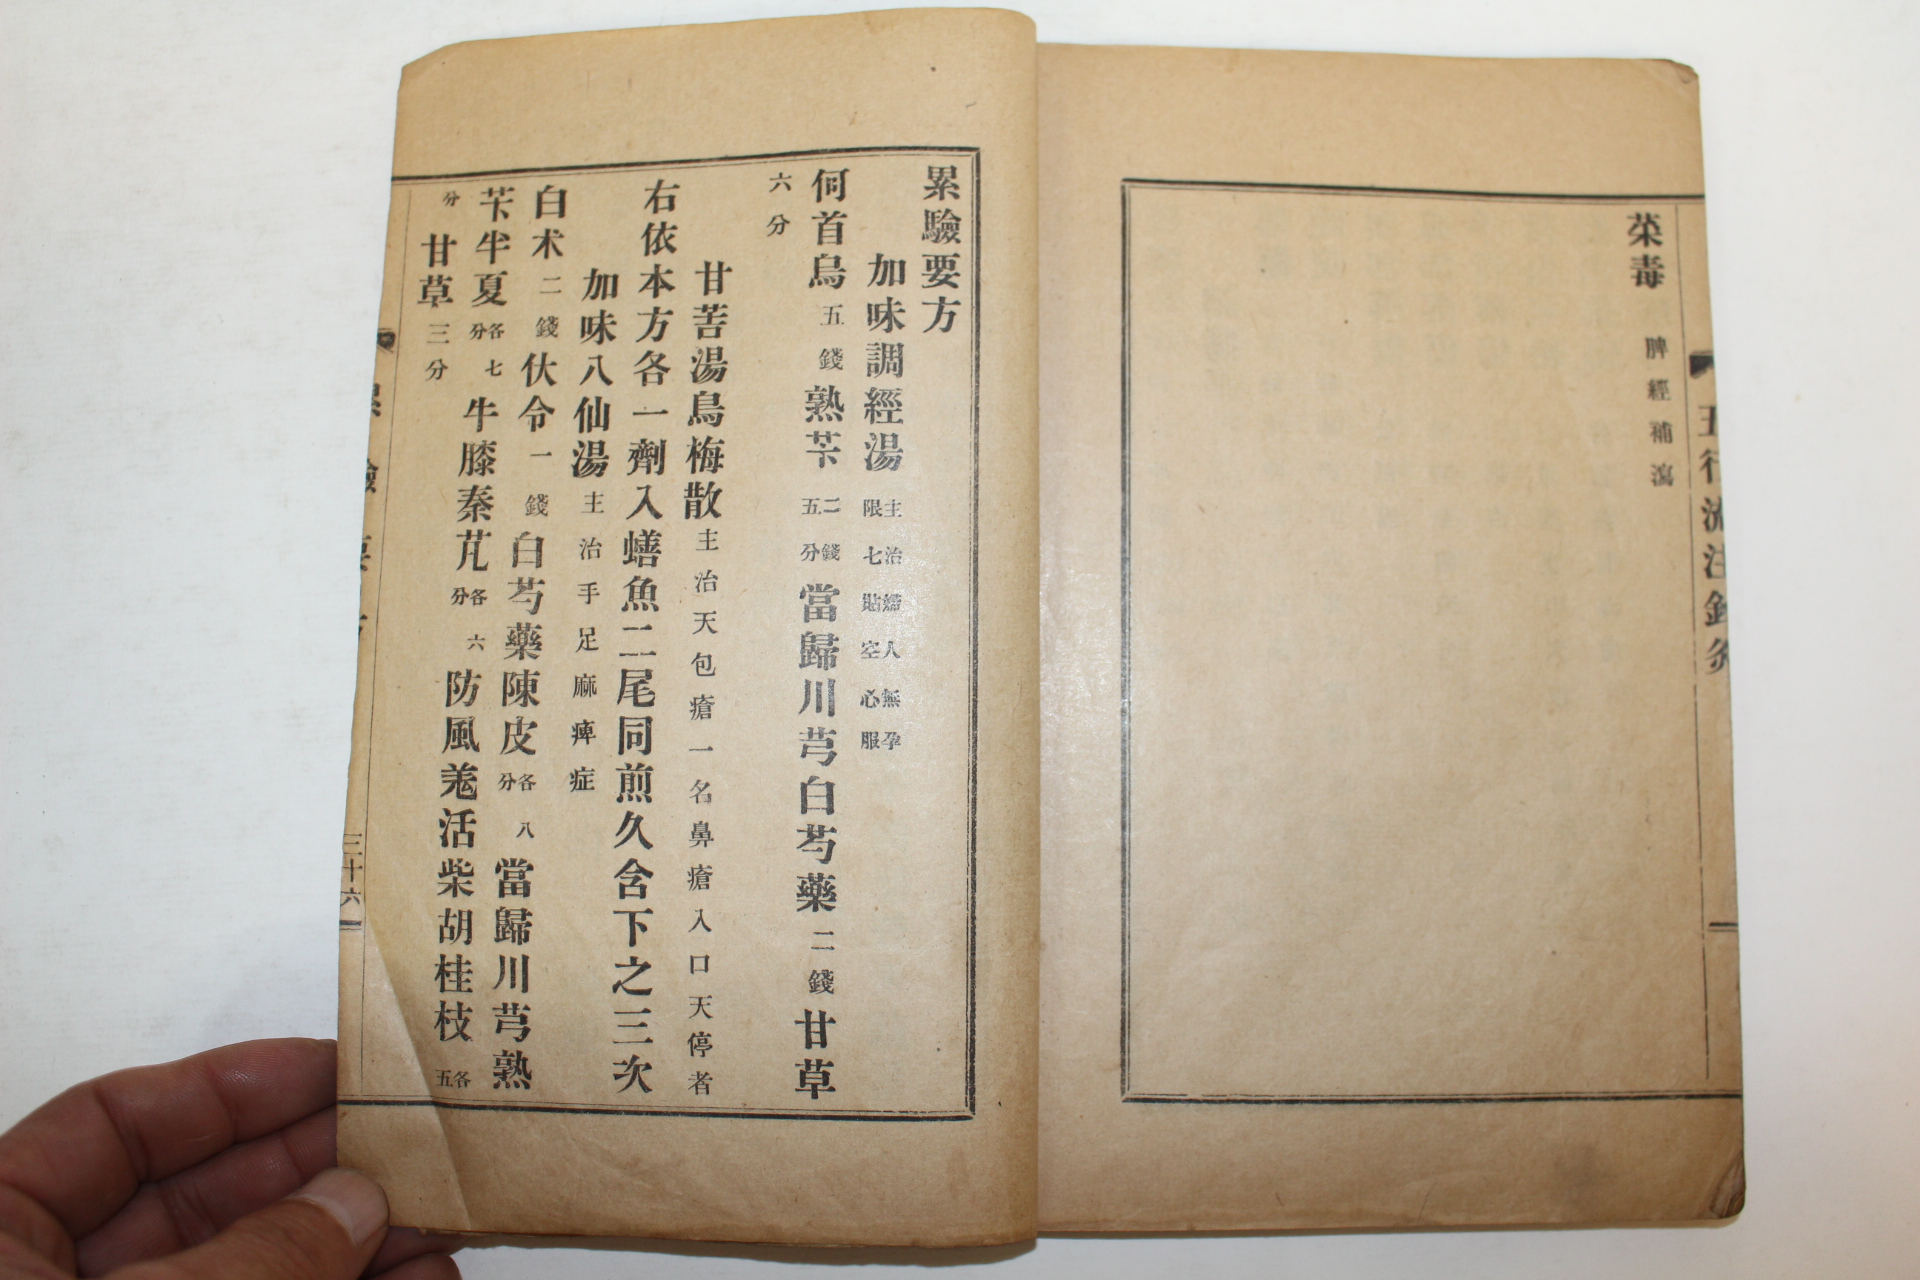 菜毒 脾經補瀉
五行流注針灸
累驗要方
加味調經湯 主治婦人無孕限七貼空心服
何首烏五錢熟芐二錢五分當歸川芎白芍藥二錢甘草
六分
甘苦湯烏梅散主治天包瘡一名鼻瘡入口天停者
右依本方各一劑入蟮魚二尾同煎久含下之三次
加味八仙湯主治手足麻痺症
白朮二錢伏令一錢白芍藥陳皮各八分當歸川芎熟
芐半夏各七分牛膝秦芃各六分防風羌活柴胡桂枝各五
分甘草三分
累驗要方
三十六